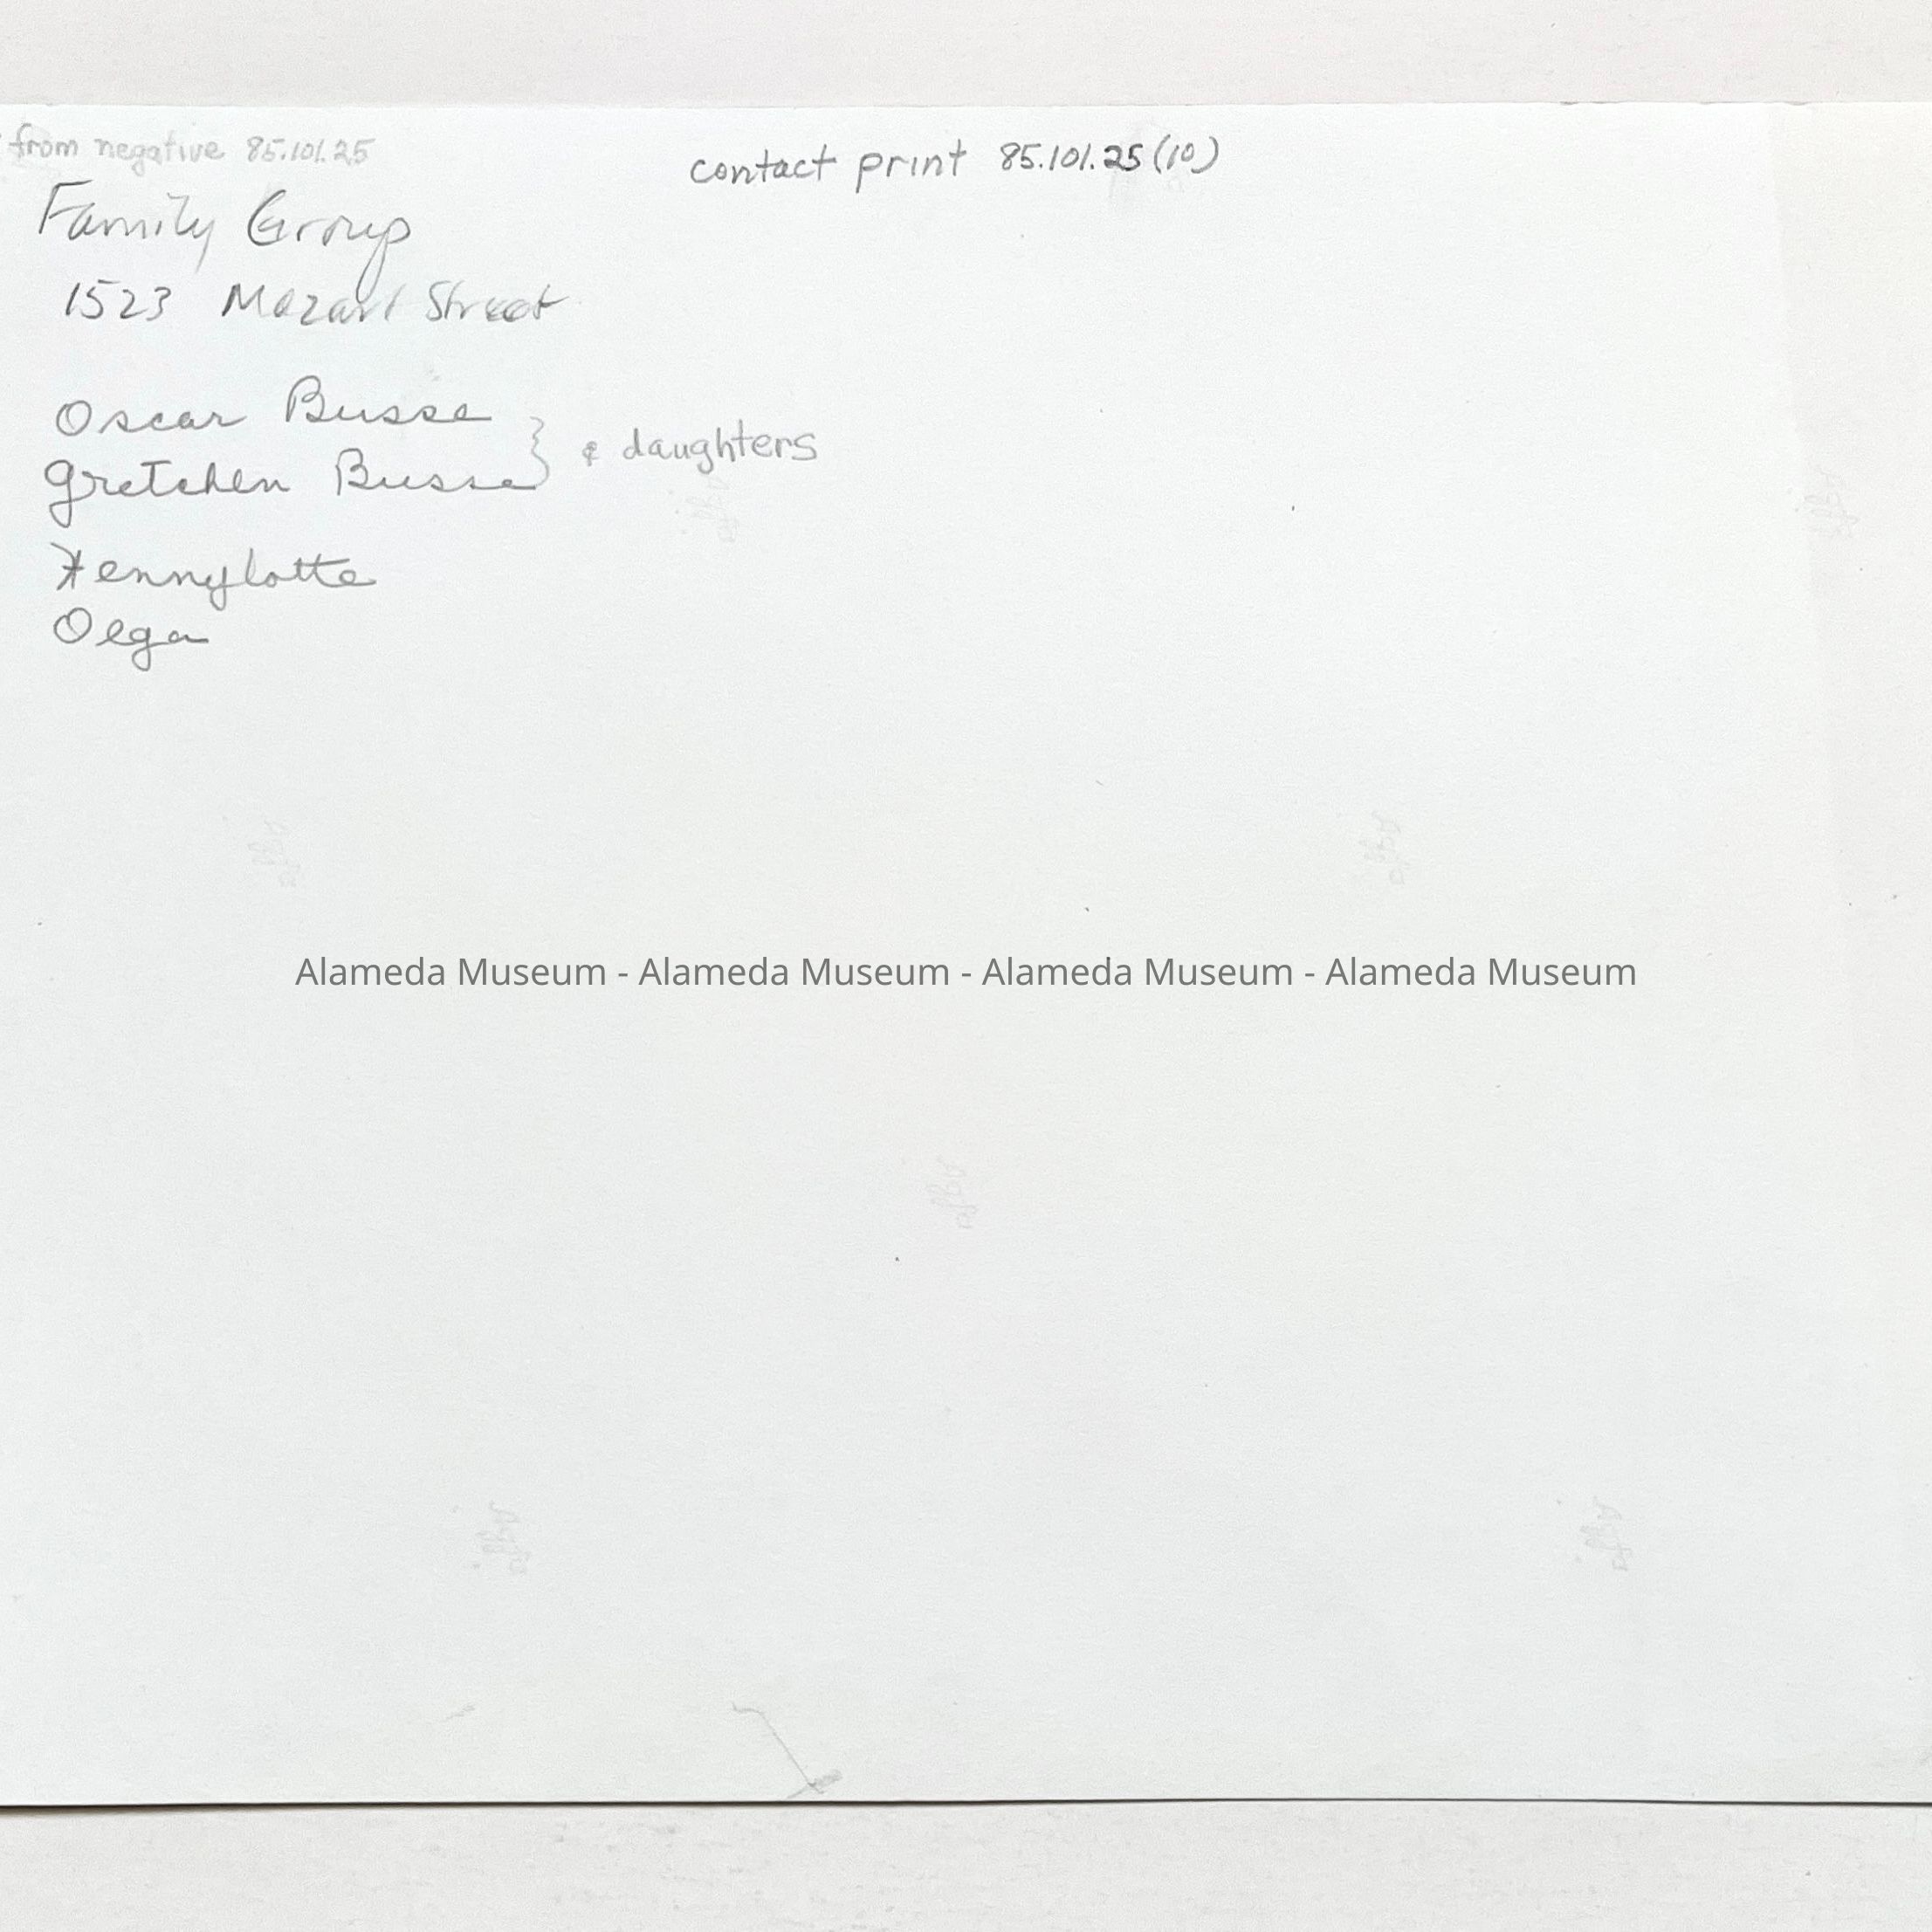 from negative 85.101.25
contact print 85.101.25 (10)
Family Group
1523 Mozart Street
Oscar Busse
Gretchen Busse } & daughters
Fennylotte
Olga
Alameda Museum - Alameda Museum - Alameda Museum - Alameda Museum